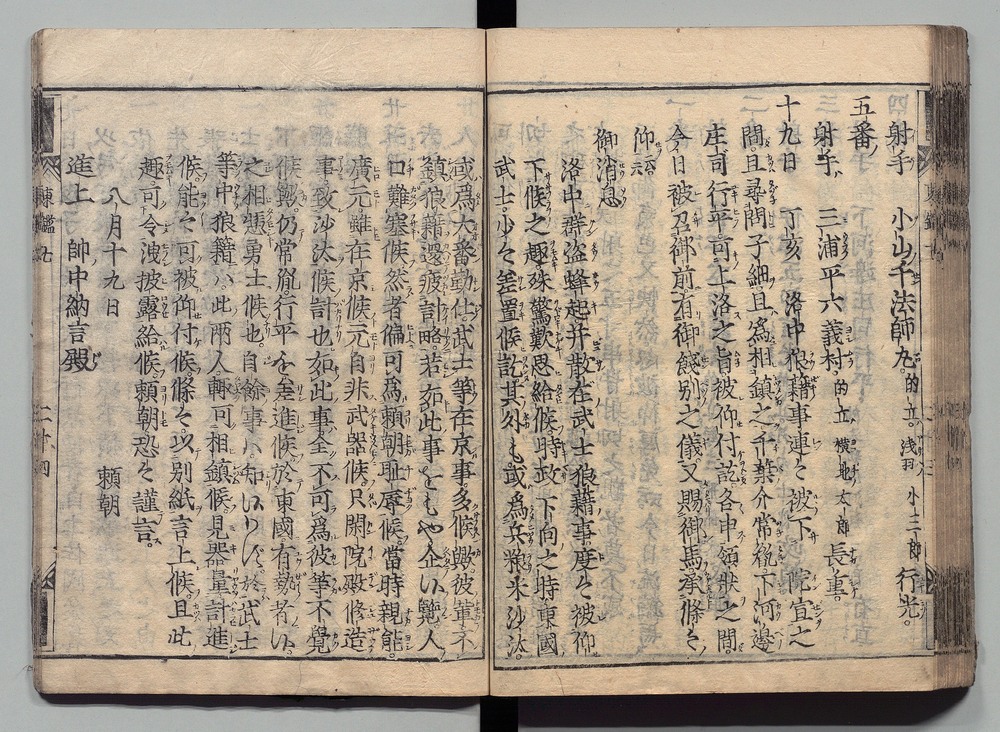 射手 小山千法師丸 的立。浅羽 小三郎 行光。
五番
射手 三浦平六義村 的立 横地太郎 長重。
十九日 丁亥 洛中狼藉事連々被下 院宣之
間且尋問子細且為相鎮之千葉介常胤下河邊
庄司行平可上洛之旨被仰付訖各申領状之間。
今日被召御前有御餞別之儀又賜御馬承條々
仰云云
御消息
洛中群盗蜂起并散在武士狼藉事度々被仰
下候之趣殊驚歎思給候時政下向之時東國
武士少々差置候訖其外も或為兵粮米沙汰。
或為大番勤仕武士等在京事多候歟彼輩不
鎮狼藉還疲計略。若如此事をもや企ハ覽人
口難塞候然者偏可為頼朝耻辱候。當時親能。
廣元雖在京候元自非武器候。只閑院殿修造
事致沙汰候計也如此事全不可為彼等不覺
候歟仍常胤行平を差進候於東國有勢者ハ。
之相憑勇士候也。自餘事ハ不知ハハス於武士
等中狼籍ハ此両人輙可相鎮候見器量計進
候能々可被仰付候條々以別紙言上候且此
趣可令洩披露給候頼朝恐々謹言。
八月十九日 頼朝
進上 帥中納言殿
東鑑七 二十四